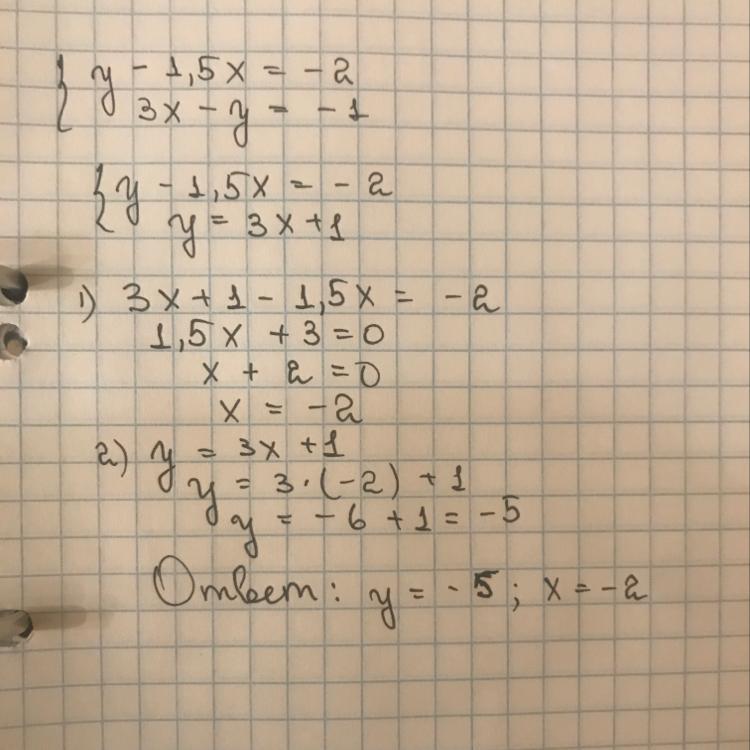 { y - 1,5x = -2
3x - y = -1
{ y - 1,5x = -2
y = 3x + 1
1) 3x + 1 - 1,5x = -2
1,5x + 3 = 0
x + 2 = 0
x = -2
2) y = 3x + 1
y = 3·(-2) + 1
y = -6 + 1 = -5
Ответ: y = -5; x = -2